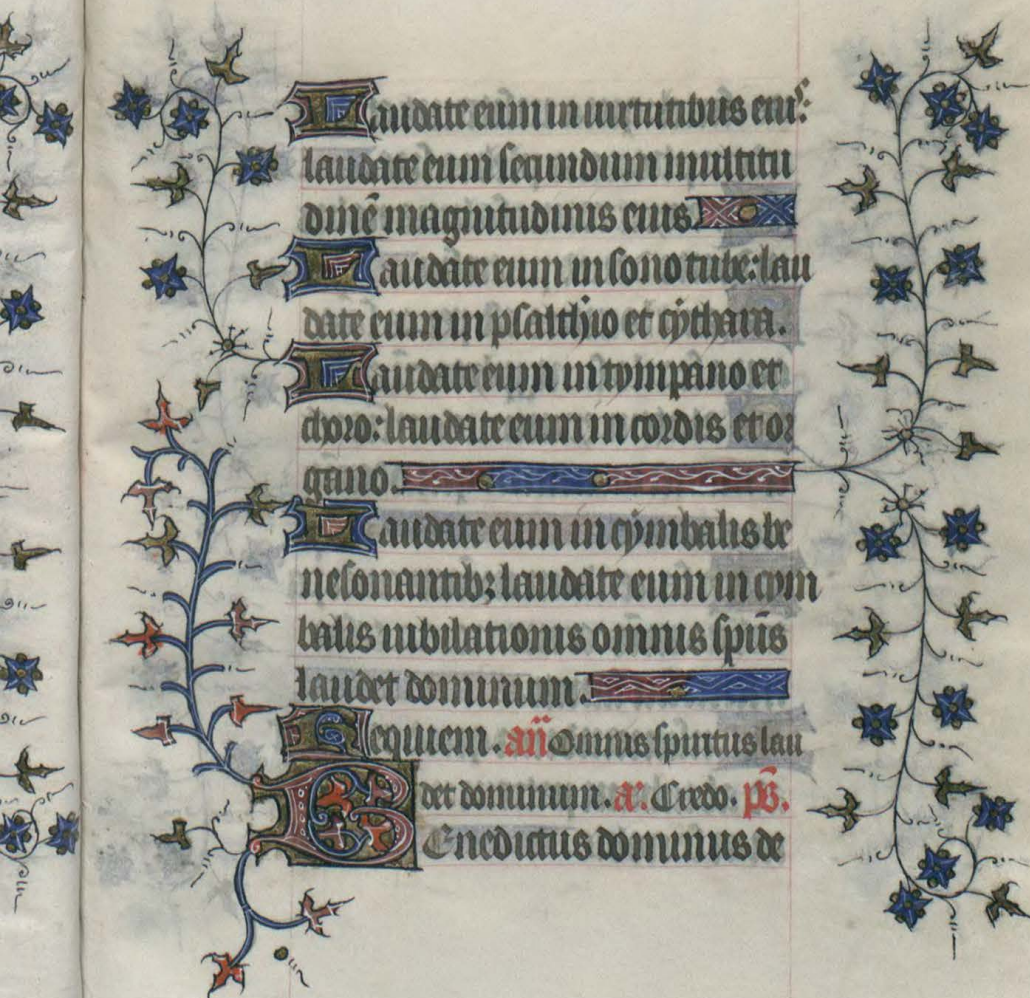 Laudate eum in uirtutibus eius:
laudate eum secundum multitu
dinē magnitudinis eius.
Laudate eum in sono tube: lau
date eum in psalthio et cythara.
Laudate eum in tympano et
choro: laudate eum in cordis et or
gano.
Laudate eum in cymbalis be
nesonantibꝫ laudate eum in cym
balis iubilationis omnis sp̄us
laudet dominum.
Requiem. an̄ Omnis spiritus lau
det dominum. a. Credo. ps̄.
BEnedictus dominus de